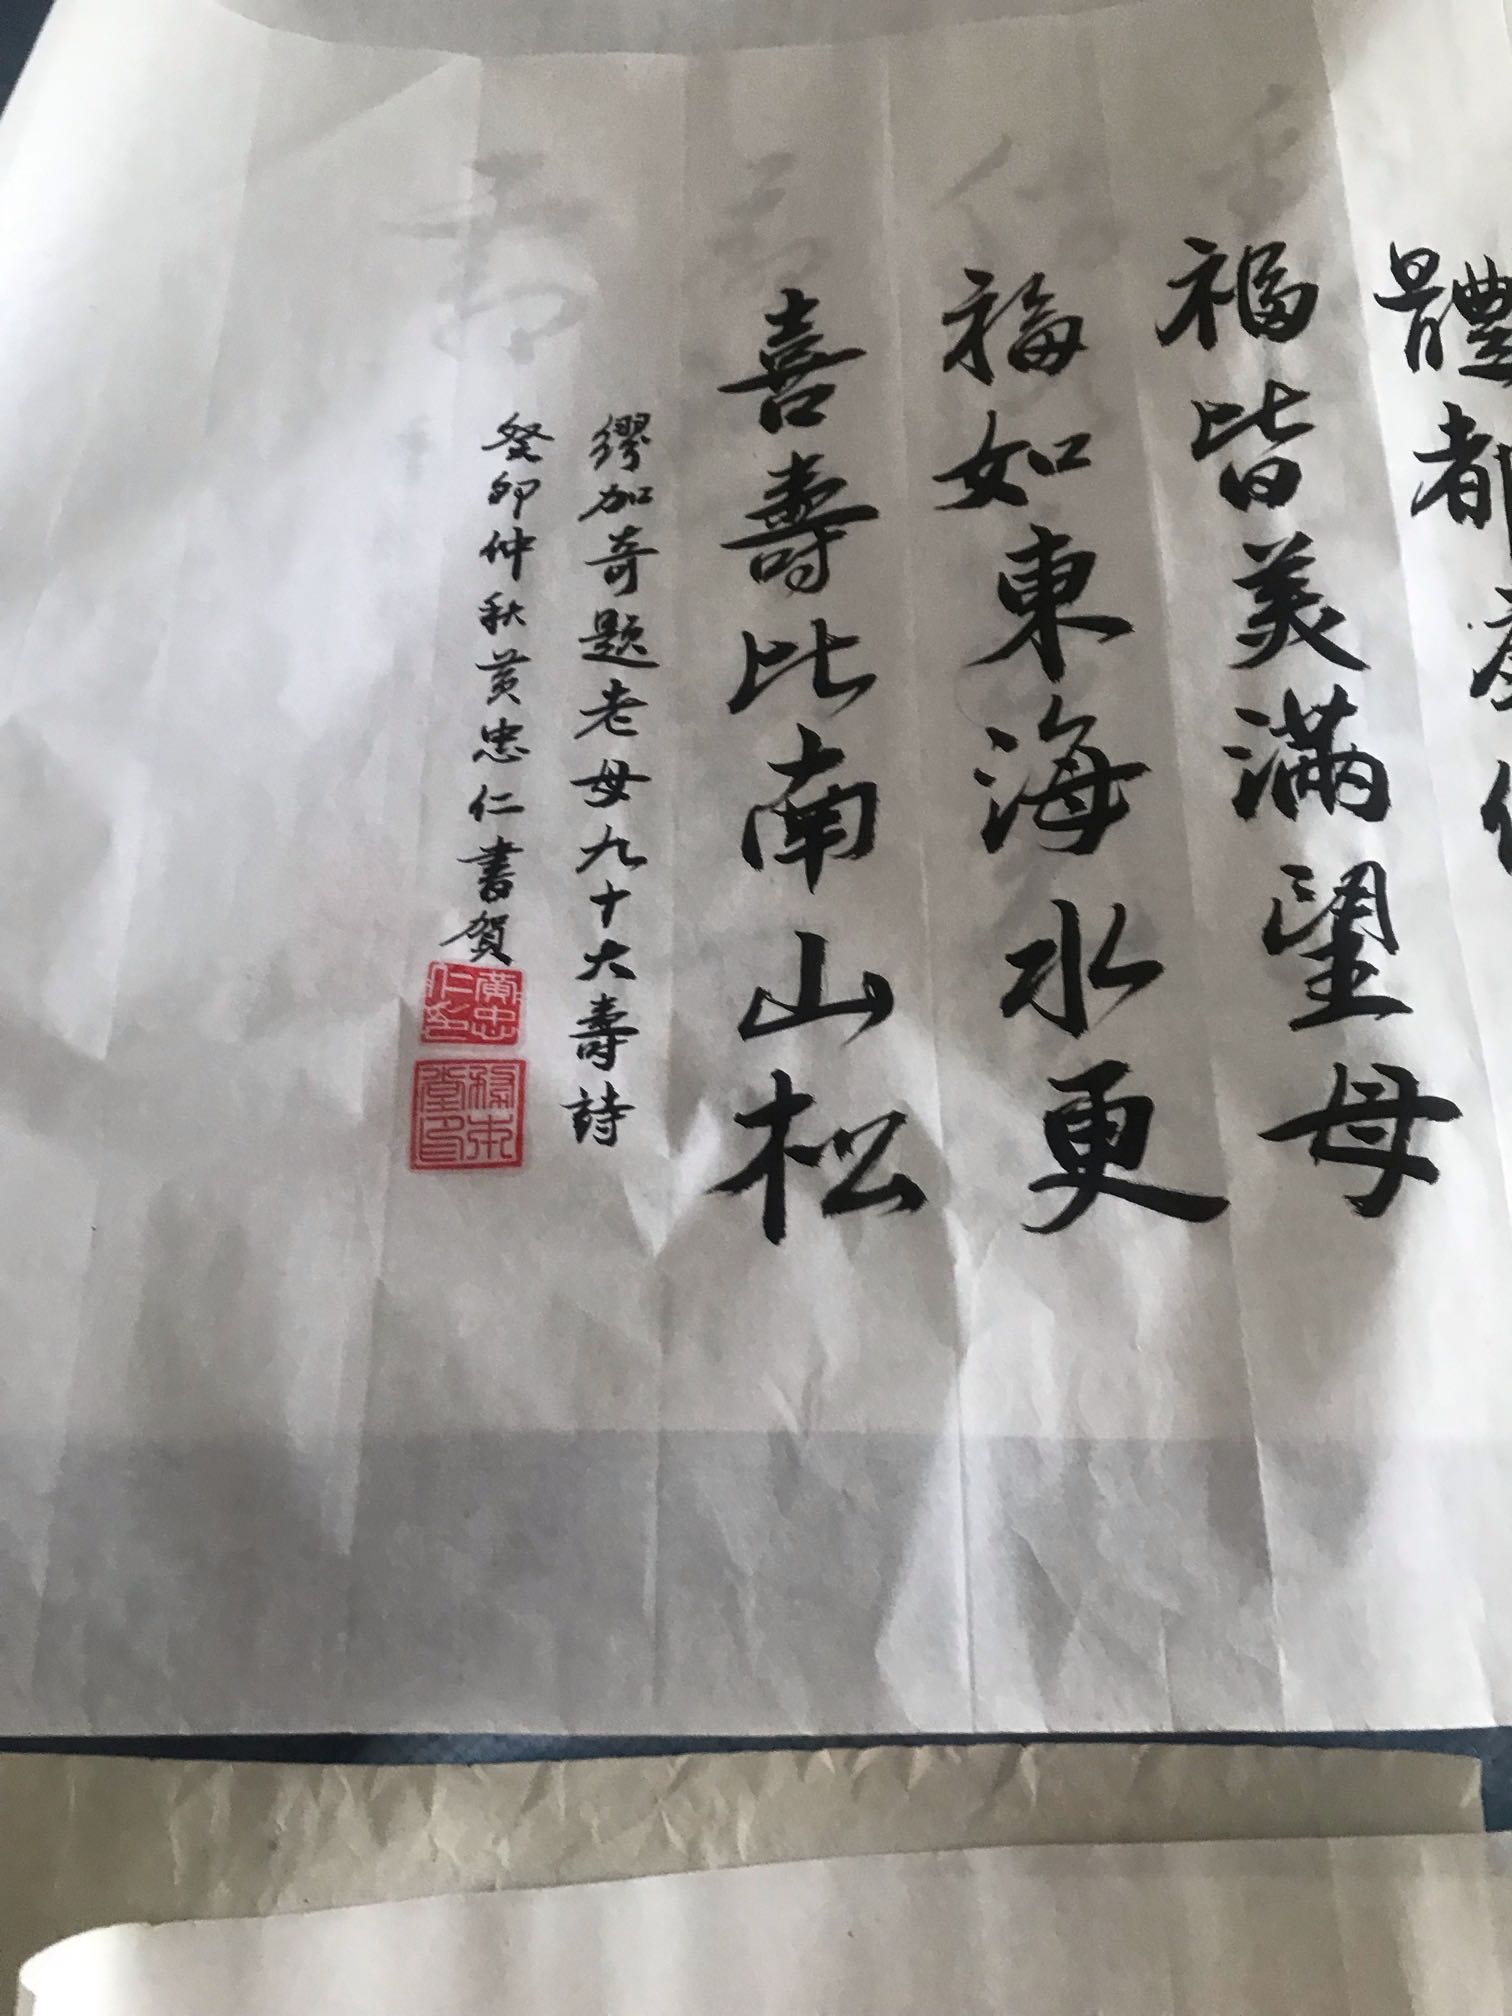 體都康健
福皆美滿望母
福如東海水更
喜壽比南山松
繆加奇題老母九十大壽詩
癸卯仲秋黃忠仁書賀
黃忠仁印